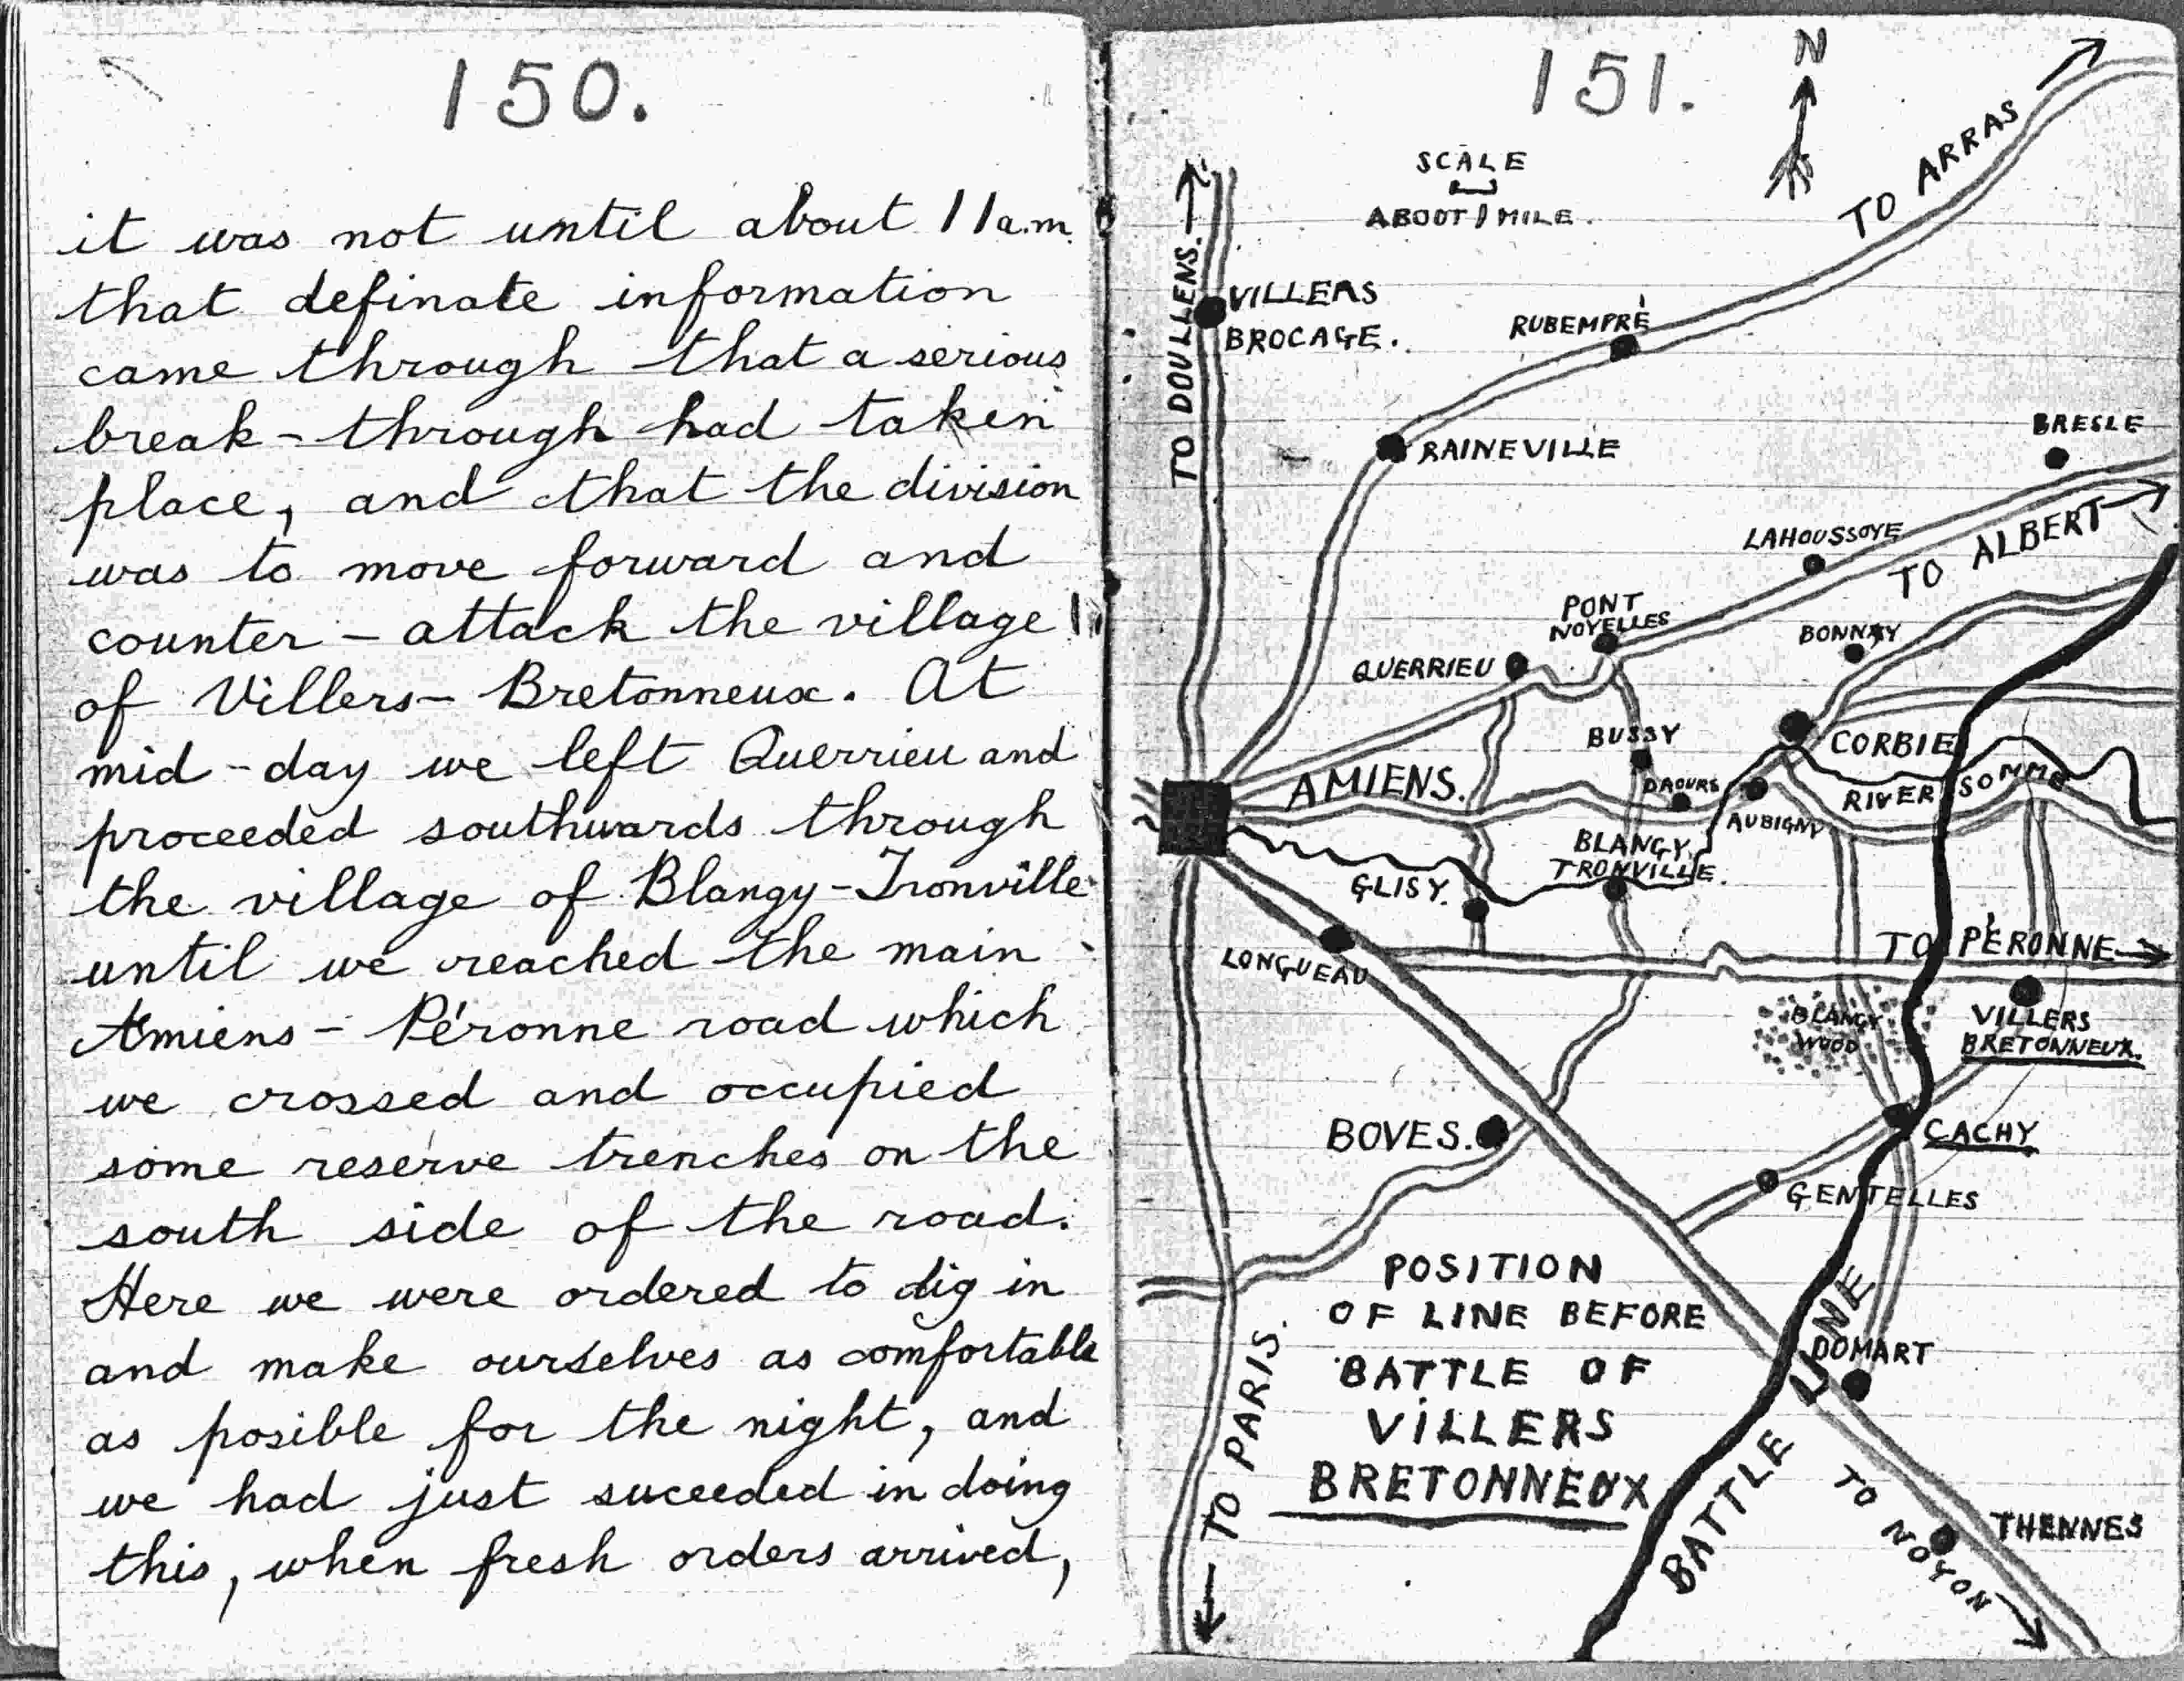 150.
it was not until about 11a.m.
that definate information
came through that a serious
break-through had taken
place, and that the division
was to move forward and
counter-attack the village
of Villers-Bretonneux. At
mid-day we left Querrieu and
proceeded southwards through
the village of Blangy-Tronville
until we reached the main
Amiens-Péronne road which
we crossed and occupied
some reserve trenches on the
south side of the road.
Here we were ordered to dig in
and make ourselves as comfortable
as posible for the night, and
we had just suceeded in doing
this, when fresh orders arrived,
151.
N
SCALE
ABOUT 1 MILE.
TO ARRAS
TO DOULLENS.
VILLERS
BROCAGE.
RUBEMPRÉ
RAINEVILLE
BRESLE
LAHOUSSOYE
TO ALBERT
PONT
NOYELLES
BONNAY
QUERRIEU
BUSSY
CORBIE
AMIENS.
DAOURS
RIVER SOMME
AUBIGNY
BLANGY
TRONVILLE.
GLISY.
TO PÉRONNE
LONGUEAU
BLANGY
WOOD
VILLERS
BRETONNEUX.
BOVES.
CACHY
GENTELLES
POSITION
OF LINE BEFORE
BATTLE OF
VILLERS
BRETONNEUX
DOMART
BATTLE LINE
TO PARIS.
TO NOYON
THENNES